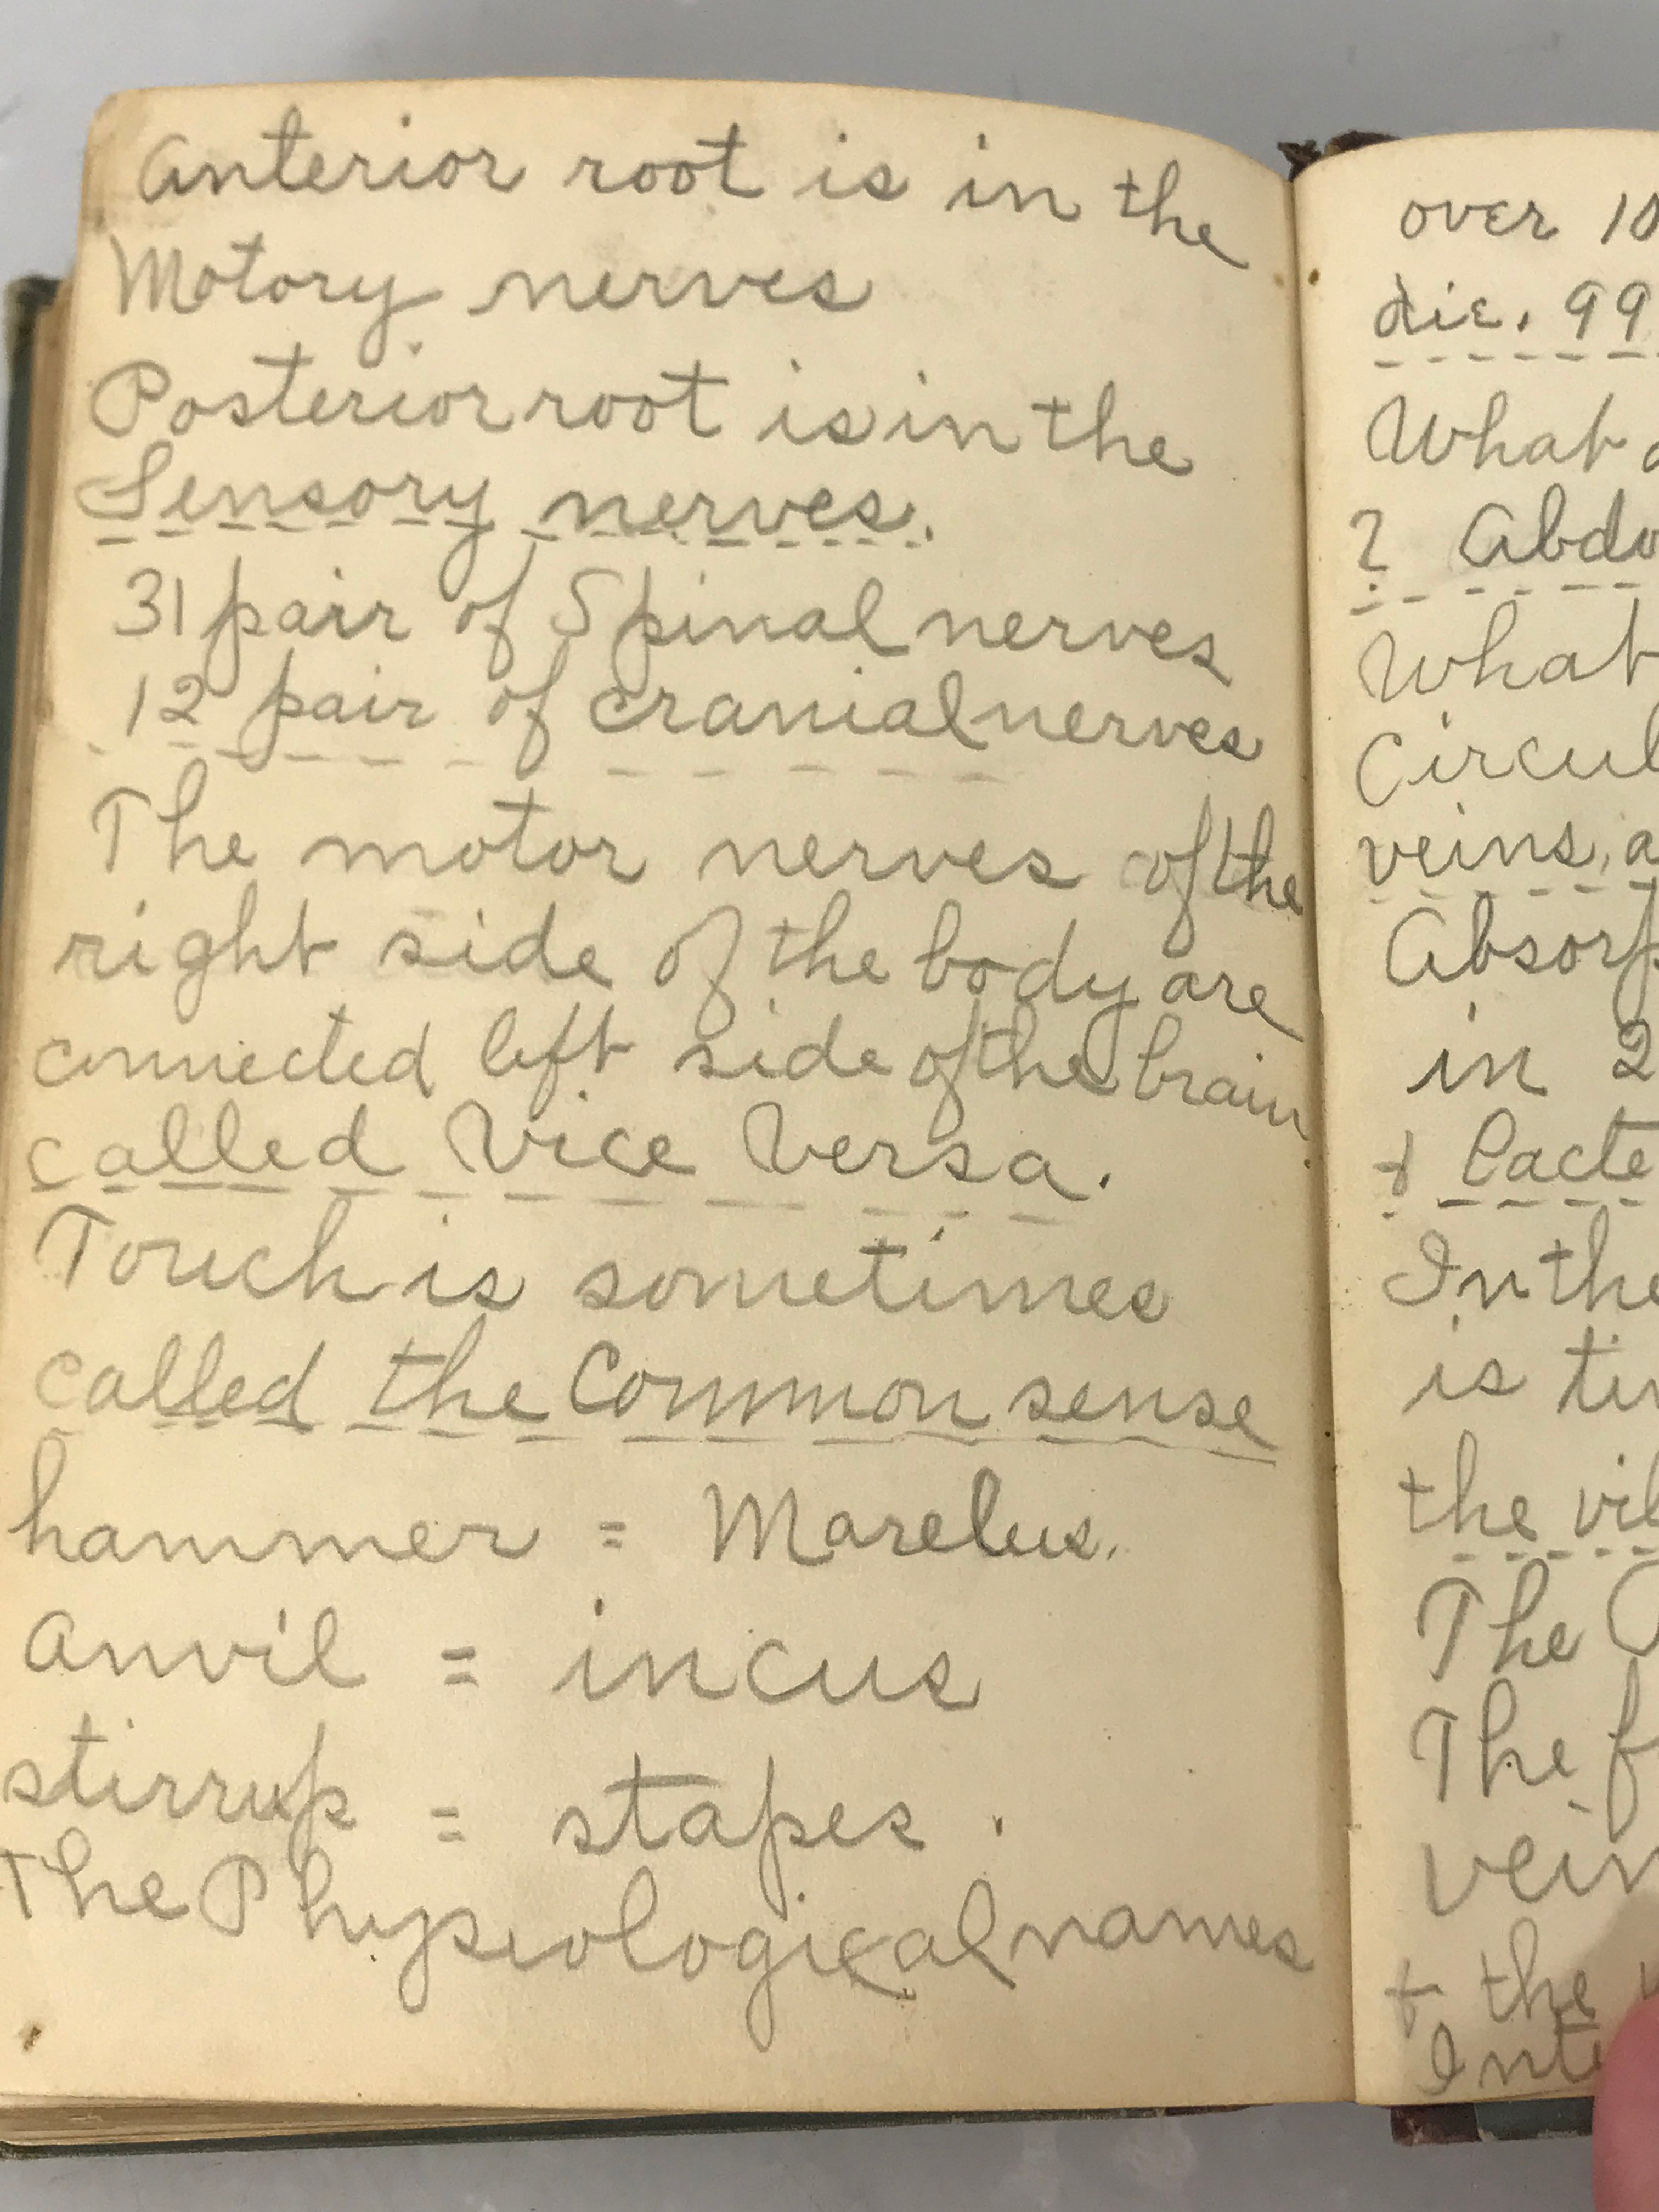 Anterior root is in the
Motory nerves
Posterior root is in the
Sensory nerves.
31 pair of Spinal nerves
12 pair of cranial nerves
The motor nerves of the
right side of the body are
connected left side of the brain
called Vice Versa.
Touch is sometimes
called the Common sense
hammer = Marelus.
anvil = incus
stirrup = stapes.
The Physiological names
over 10
die. 99
What
? Abdo
What
Circul
veins, a
Absorp
in 2
& Lacte
In the
is tin
the vil
The
The f
vein
& the
Inte